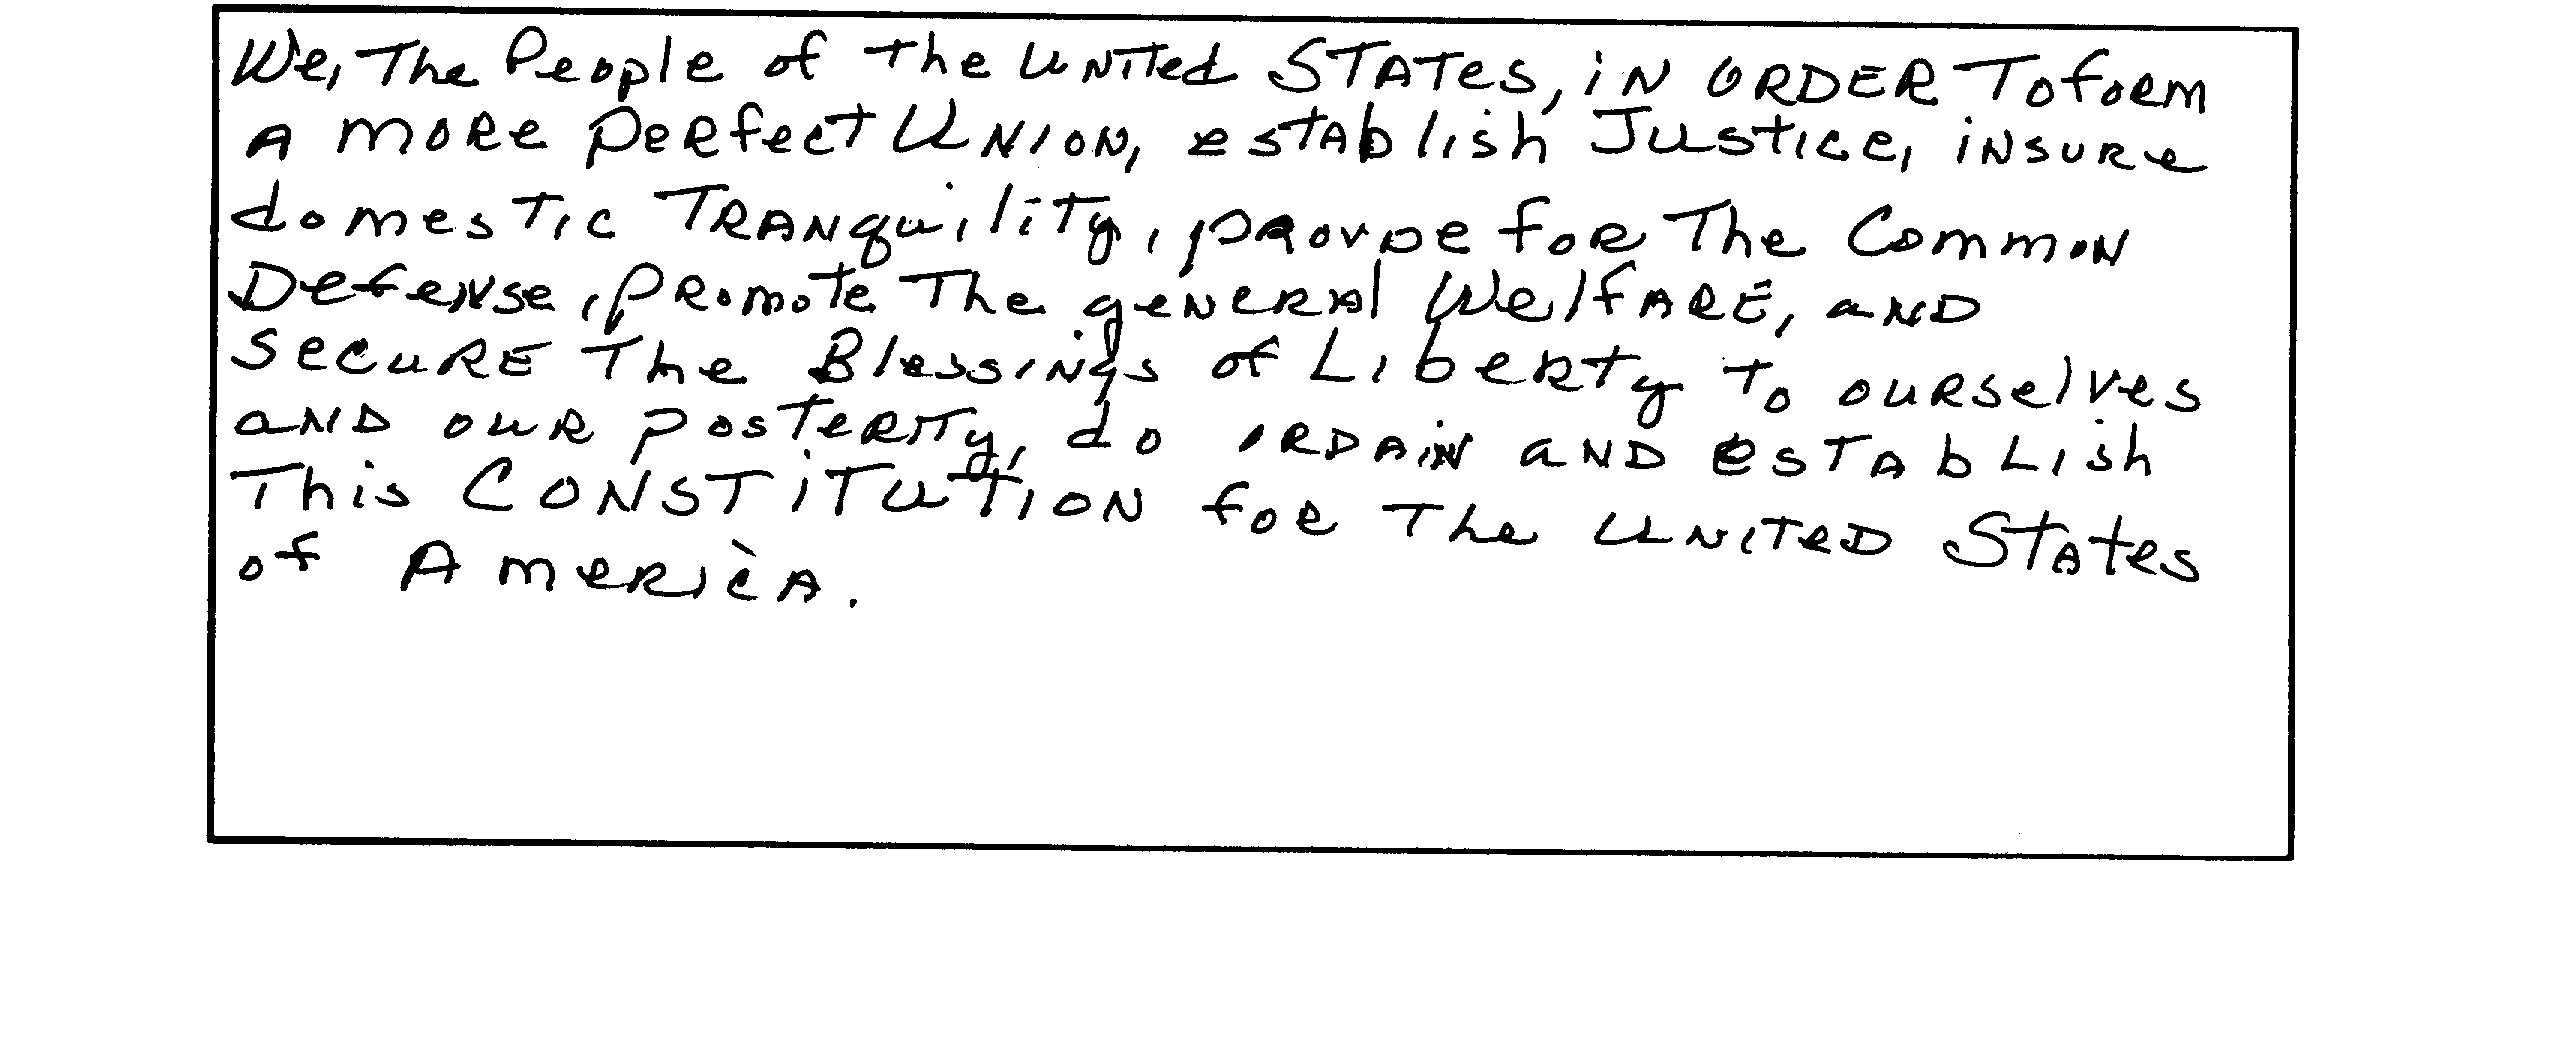 We, The People of the United States, in order to form
a more perfect Union, establish Justice, insure
domestic Tranquility, provde for The Common
Defense, promote The general Welfare, and
secure The Blessings of Liberty To ourselves
and our posterity, do ordain and establish
This Constitution for The United States
of America.